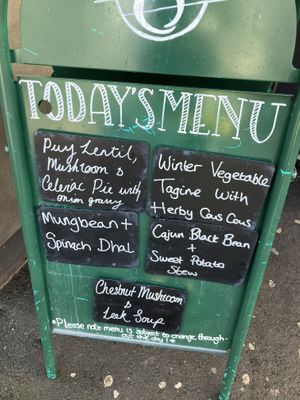 TODAY'S MENU
Puy Lentil,
Mushroom &
Celeriac Pie with
onion gravy
Winter Vegetable
Tagine with
Herby Cous Cous
Mungbean +
Spinach Dhal
Cajun Black Bean
+
Sweet Potato
Stew
Chestnut Mushroom
&
Leek Soup
*Please note menu is subject to change, through-
out the day!*